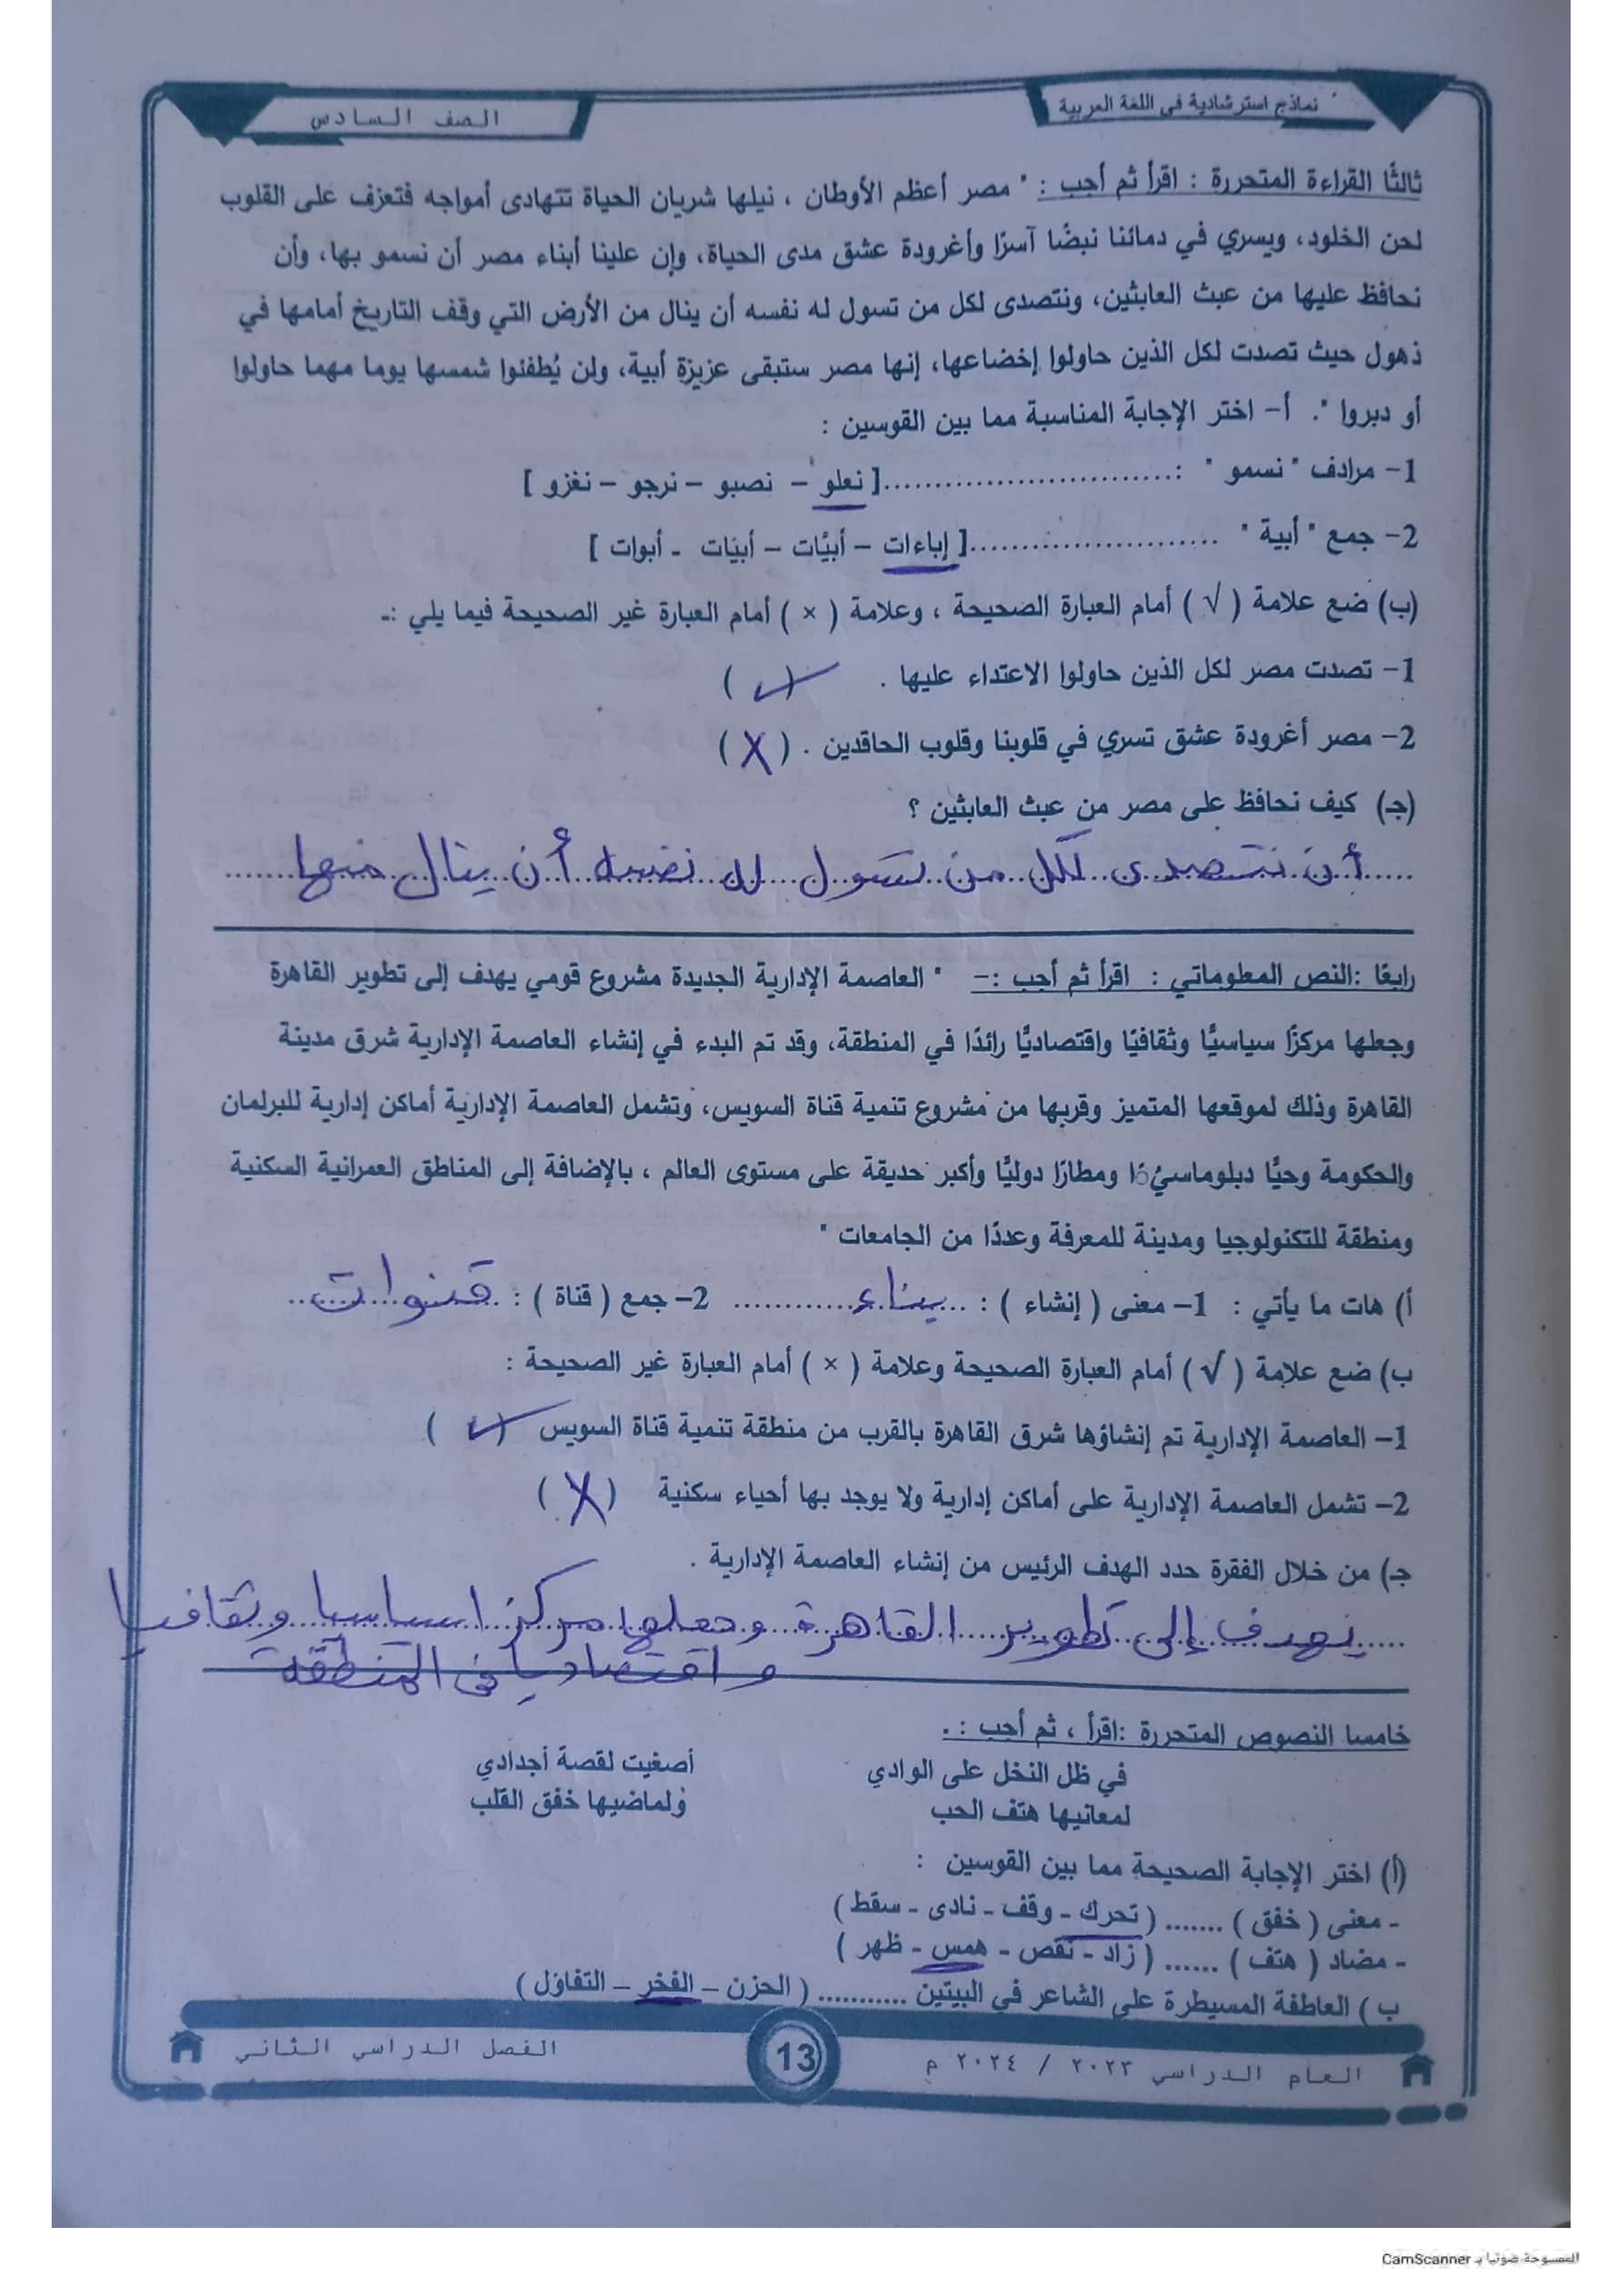 نماذج استرشادية في اللغة العربية
الصف السادس
ثالثًا القراءة المتحررة : اقرأ ثم أجب : " مصر أعظم الأوطان ، نيلها شريان الحياة تتهادى أمواجه فتعزف على القلوب
لحن الخلود، ويسري في دمائنا نبضًا آسرًا وأغرودة عشق مدى الحياة، وإن علينا أبناء مصر أن نسمو بها، وأن
نحافظ عليها من عبث العابثين، ونتصدى لكل من تسول له نفسه أن ينال من الأرض التي وقف التاريخ أمامها في
ذهول حيث تصدت لكل الذين حاولوا إخضاعها، إنها مصر ستبقى عزيزة أبية، ولن يُطفئوا شمسها يوما مهما حاولوا
أو دبروا ". أ- اختر الإجابة المناسبة مما بين القوسين :
1- مرادف " نسمو " :..............................[ نعلو – نصبو – نرجو – نغزو ]
2- جمع " أبية " ..........................[ إباءات – أبيَّات – أبيَات - أبوات ]
(ب) ضع علامة ( √ ) أمام العبارة الصحيحة ، وعلامة ( × ) أمام العبارة غير الصحيحة فيما يلي :-
1- تصدت مصر لكل الذين حاولوا الاعتداء عليها . ( ✓ )
2- مصر أغرودة عشق تسري في قلوبنا وقلوب الحاقدين . ( X )
(جـ) كيف نحافظ على مصر من عبث العابثين ؟
أن نتصدى لكل من تسول له نفسه أن ينال منها
رابعًا :النص المعلوماتي : اقرأ ثم أجب :- " العاصمة الإدارية الجديدة مشروع قومي يهدف إلى تطوير القاهرة
وجعلها مركزًا سياسيًّا وثقافيًا واقتصاديًّا رائدًا في المنطقة، وقد تم البدء في إنشاء العاصمة الإدارية شرق مدينة
القاهرة وذلك لموقعها المتميز وقربها من مشروع تنمية قناة السويس، وتشمل العاصمة الإدارية أماكن إدارية للبرلمان
والحكومة وحيًّا دبلوماسيًّا ومطارًا دوليًّا وأكبر حديقة على مستوى العالم ، بالإضافة إلى المناطق العمرانية السكنية
ومنطقة للتكنولوجيا ومدينة للمعرفة وعددًا من الجامعات "
أ) هات ما يأتي : 1- معنى ( إنشاء ) : بناء 2- جمع ( قناة ) : قنوات
ب) ضع علامة ( √ ) أمام العبارة الصحيحة وعلامة ( × ) أمام العبارة غير الصحيحة :
1- العاصمة الإدارية تم إنشاؤها شرق القاهرة بالقرب من منطقة تنمية قناة السويس ( ✓ )
2- تشمل العاصمة الإدارية على أماكن إدارية ولا يوجد بها أحياء سكنية ( X )
جـ) من خلال الفقرة حدد الهدف الرئيس من إنشاء العاصمة الإدارية .
يهدف إلى تطوير القاهرة وجعلها مركزا سياسيا وثقافيا
واقتصاديا في المنطقة
خامسا النصوص المتحررة :اقرأ ، ثم أجب :.
في ظل النخل على الوادي أصغيت لقصة أجدادي
لمعانيها هتف الحب ولماضيها خفق القلب
(أ) اختر الإجابة الصحيحة مما بين القوسين :
- معنى ( خفق ) ....... ( تحرك - وقف - نادى - سقط )
- مضاد ( هتف ) ...... ( زاد - نقص - همس - ظهر )
ب ) العاطفة المسيطرة على الشاعر في البيتين ........... ( الحزن – الفخر – التفاؤل )
العام الدراسي ٢٠٢٣ / ٢٠٢٤ م
13
الفصل الدراسي الثاني
الممسوحة ضوئيا بـ CamScanner